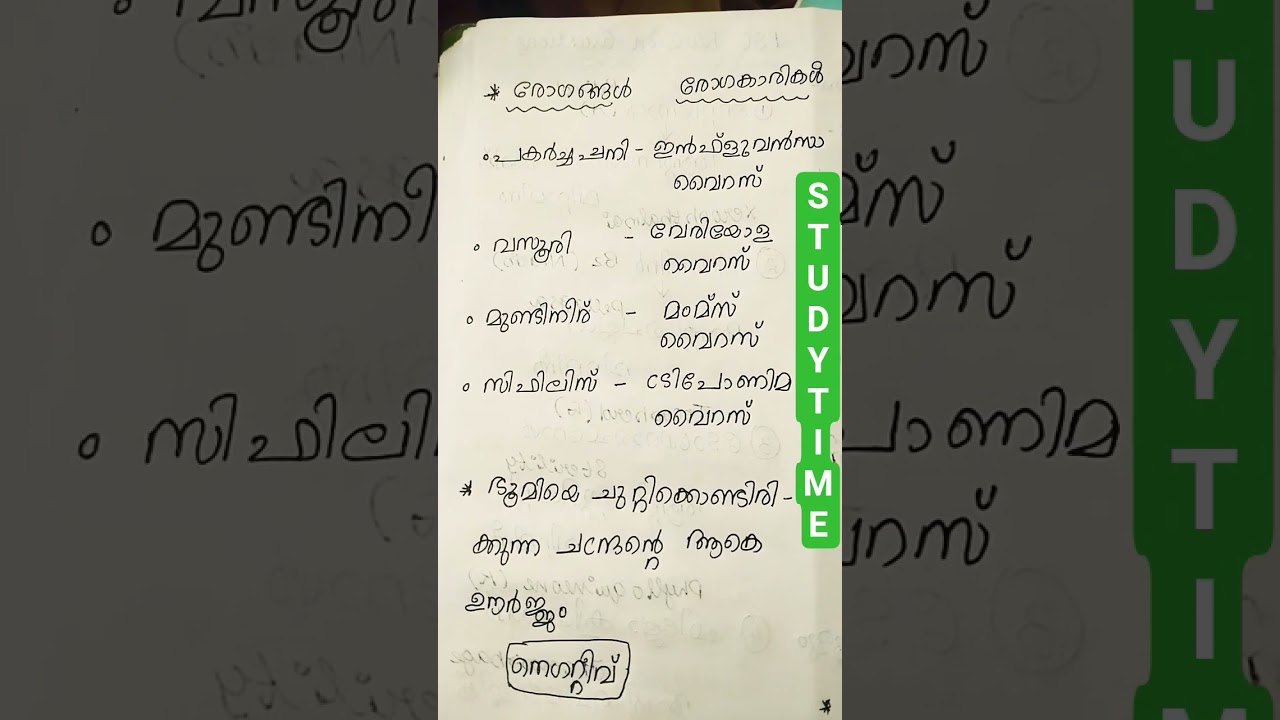 * രോഗങ്ങൾ രോഗകാരികൾ
• പകർച്ചപ്പനി - ഇൻഫ്ളുവൻസ
വൈറസ്
• വസൂരി - വേരിയോള
വൈറസ്
• മുണ്ടിനീര് - മംമ്സ്
വൈറസ്
• സിഫിലിസ് - ട്രിപോണിമ
വൈറസ്
* ഭൂമിയെ ചുറ്റിക്കൊണ്ടിരി-
ക്കുന്ന ചന്ദ്രൻ്റെ ആകെ
ഊർജ്ജം
നെഗറ്റീവ്
*
STUDYTIME